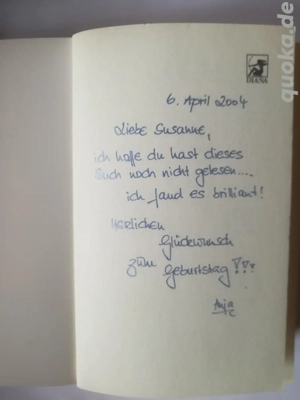 quoka.de
DIANA
6. April 2004
Liebe Susanne,
ich hoffe du hast dieses
Buch noch nicht gelesen....
ich fand es brilliant!
Herlichen
Glückwunsch
zum Geburtstag!!!
Anja